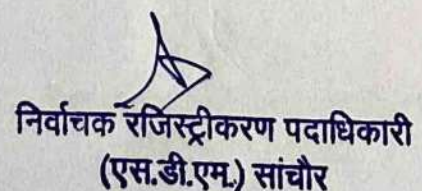 निर्वाचक रजिस्ट्रीकरण पदाधिकारी
(एस.डी.एम.) सांचौर